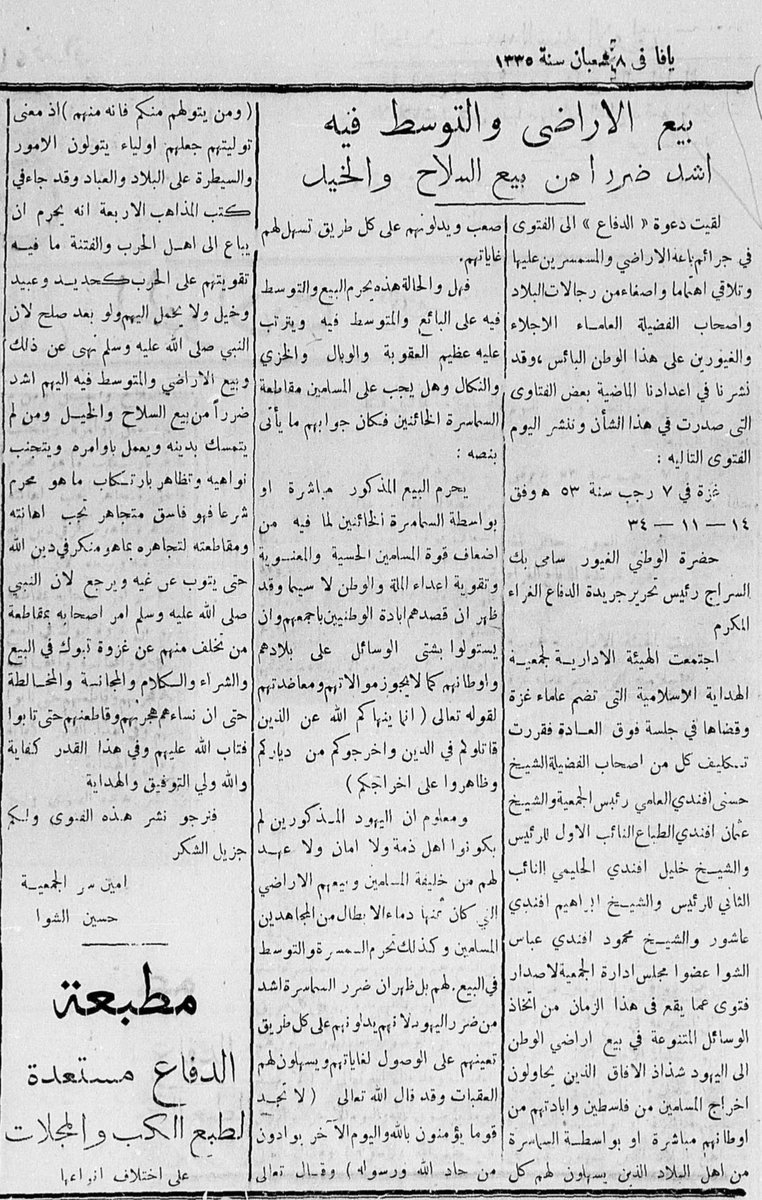 يافا في ٨ شعبان سنة ١٣٣٥
بيع الاراضي والتوسط فيه
اشد ضررا من بيع السلاح والخيل
لقيت دعوة «الدفاع» الى الفتوى
في جرائم باعة الاراضي والمسمسرين عليها
وتلاقي اهتماما واصغاء من رجالات البلاد
واصحاب الفضيلة العلماء الاجلاء
والغيورين على هذا الوطن البائس ، وقد
نشرنا في اعدادنا الماضية بعض الفتاوى
التى صدرت في هذا الشأن وننشر اليوم
الفتوى التاليه :
غزة في ٧ رجب سنة ٥٣ ه وفق
١٤ — ١١ — ٣٤
حضرة الوطني الغيور سامي بك
السراج رئيس تحرير جريدة الدفاع الغراء
المكرم
اجتمعت الهيئة الادارية لجمعية
الهداية الاسلامية التى تضم علماء غزة
وقضاها في جلسة فوق العادة فقررت
تكليف كل من اصحاب الفضيلة الشيخ
حسنى افندي العلمي رئيس الجمعية والشيخ
عثمان افندي الطباع النائب الاول للرئيس
والشيخ خليل افندي الحليمي النائب
الثاني للرئيس والشيخ ابراهيم افندي
عاشور والشيخ محمود افندي عباس
الشوا عضوا مجلس ادارة الجمعية لاصدار
فتوى عما يقع في هذا الزمان من اتخاذ
الوسائل المتنوعة في بيع اراضي الوطن
الى اليهود شذاذ الافاق الذين يحاولون
اخراج المسلمين من فلسطين وابادتهم من
اوطانهم مباشرة او بواسطة السماسرة
من اهل البلاد الذين يسهلون لهم كل
صعب ويدلونهم على كل طريق تسهل لهم
غاياتهم.
فهل والحالة هذه يحرم البيع والتوسط
فيه على البائع والمتوسط فيه ويترتب
عليه عظيم العقوبة والوبال والخزي
والنكال وهل يجب على المسلمين مقاطعة
السماسرة الخائنين فكان جوابهم ما يأتى
بنصه :
يحرم البيع المذكور مباشرة او
بواسطة السماسرة الخائنين لما فيه من
اضعاف قوة المسلمين الحسية والمعنوية
وتقوية اعداء الملة والوطن لا سيما وقد
ظهر ان قصدهم ابادة الوطنيين باجمعهم وان
يستولوا بشتى الوسائل على بلادهم
واوطانهم كما لا يجوز موالاتهم ومعاضدتهم
لقوله تعالى ( انما ينهاكم الله عن الذين
قاتلوكم في الدين واخرجوكم من دياركم
وظاهروا على اخراجكم )
ومعلوم ان اليهود المذكورين لم
يكونوا اهل ذمة ولا امان ولا عهد
لهم من خليفة المسلمين وبيعهم الاراضي
التي كان ثمنها دماء الابطال من المجاهدين
المسلمين وكذلك تحرم السمسرة والتوسط
في البيع. لهم بل ظهر ان ضرر السماسرة اشد
من ضرر اليهود لانهم يدلونهم على كل طريق
تعينهم على الوصول لغاياتهم ويسهلون لهم
العقبات وقد قال الله تعالى ( لا تجد
قوما يؤمنون بالله واليوم الآخر يوادون
من حاد الله ورسوله ) وقال تعالى
( ومن يتولهم منكم فانه منهم ) اذ معنى
توليتهم جعلهم اولياء يتولون الامور
والسيطرة على البلاد والعباد وقد جاء في
كتب المذاهب الاربعة انه يحرم ان
يباع الى اهل الحرب والفتنة ما فيه
تقويتهم على الحرب كحديد وعبيد
وخيل ولا يحمل اليهم ولو بعد صلح لان
النبي صلى الله عليه وسلم نهى عن ذلك
وبيع الاراضي والمتوسط فيه اليهم اشد
ضرراً من بيع السلاح والخيل ومن لم
يتمسك بدينه ويعمل باوامره ويتجنب
نواهيه وتظاهر بارتكاب ما هو محرم
شرعا فهو فاسق متجاهر تجب اهانته
ومقاطعته لتجاهره بما هو منكر في دين الله
حتى يتوب عن غيه ويرجع لان النبي
صلى الله عليه وسلم امر اصحابه بمقاطعة
من تخلف منهم عن غزوة تبوك في البيع
والشراء والكلام والمجانسة والمخالطة
حتى ان نساءهم هجرنهم وقاطعنهم حتى تابوا
فتاب الله عليهم وفي هذا القدر كفاية
والله ولي التوفيق والهداية
فنرجو نشر هذه الفتوى ولكم
جزيل الشكر
امين سر الجمعية
حسين الشوا
مطبعة
الدفاع مستعدة
لطبع الكتب والمجلات
على اختلاف انواعها